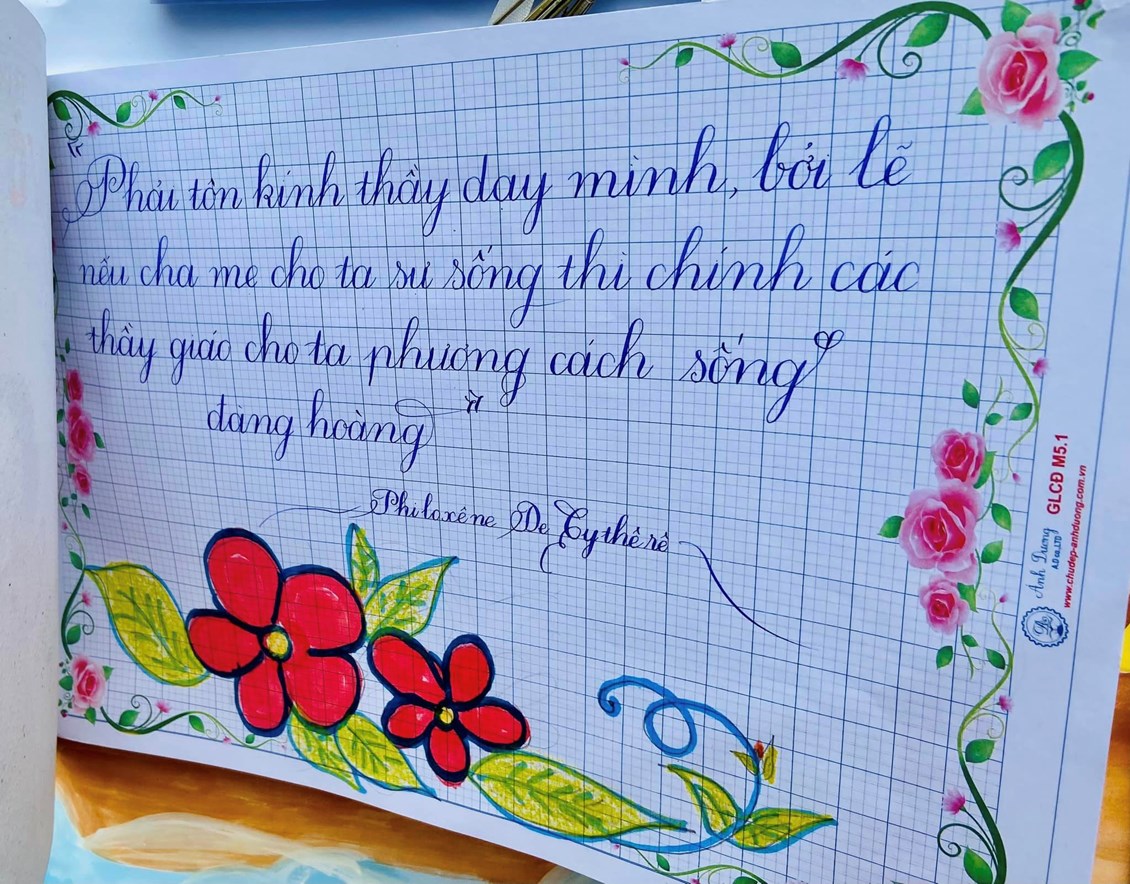 “Phải tôn kính thầy dạy mình, bởi lẽ
nếu cha mẹ cho ta sự sống thì chính các
thầy giáo cho ta phương cách sống
đàng hoàng”
Philoxêne De Cythêrê
GLCĐ M5.1
Ánh Dương
A.D CO.LTD
www.chudep-anhduong.com.vn